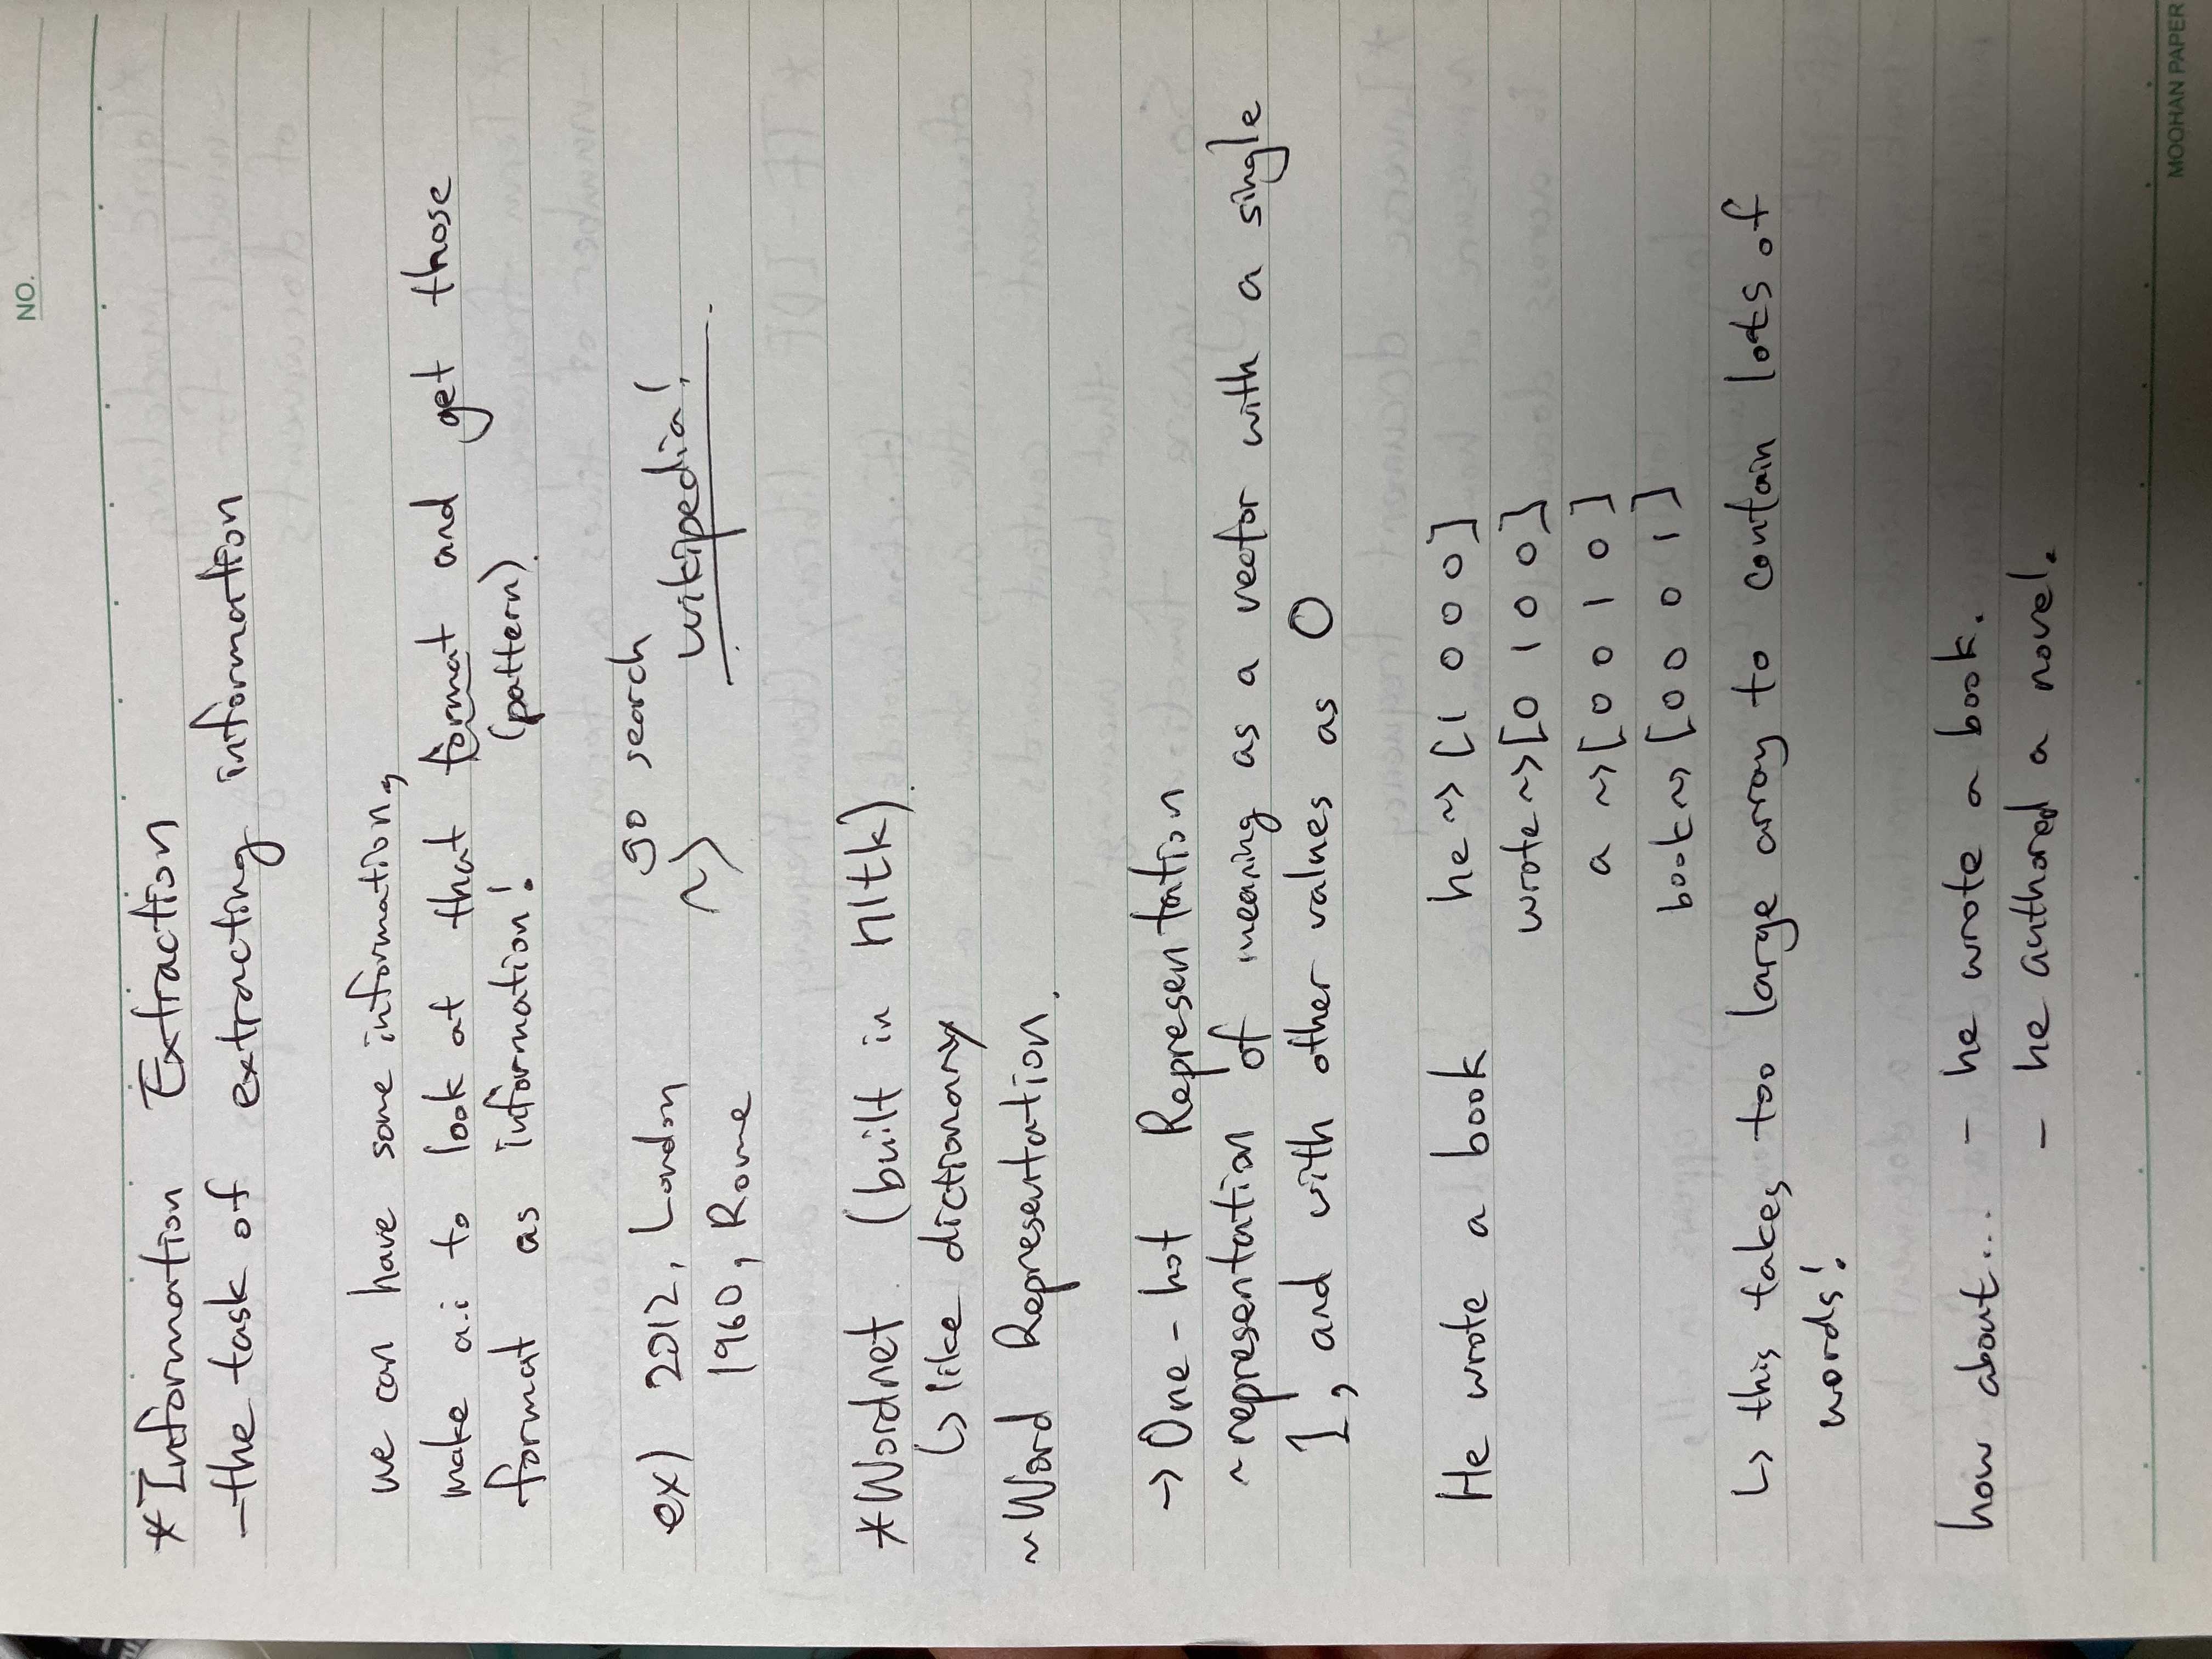 NO.
*Information Extraction
-the task of extracting information
we can have some information,
make a.i to look at that format and get those
format as information! (pattern).
go search
ex) 2012, London ~> wikipedia!
1960, Rome
*Wordnet. (built in nltk).
↳ like dictionary
~Word Representation.
→ One-hot Representation
~representation of meaning as a vector with a single
1, and with other values as 0
He wrote a book he ~> [1 0 0 0]
wrote ~> [0 1 0 0]
a ~> [0 0 1 0]
book ~> [0 0 0 1]
↳ this takes too large array to contain lots of
words!
how about... - he wrote a book.
- he authored a novel.
MOOHAN PAPER